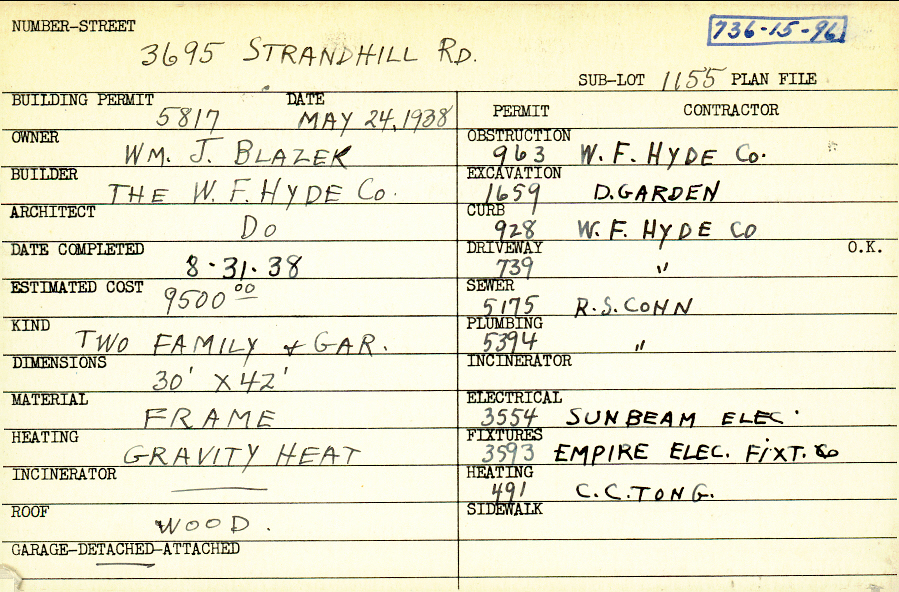 NUMBER-STREET
736-15-96
3695 STRANDHILL RD.
SUB-LOT 1155 PLAN FILE
BUILDING PERMIT DATE
5817 MAY 24, 1938
OWNER
WM. J. BLAZEK
BUILDER
THE W. F. HYDE CO.
ARCHITECT
DO
DATE COMPLETED
8-31-38
ESTIMATED COST
9500 00
KIND
TWO FAMILY & GAR.
DIMENSIONS
30' X 42'
MATERIAL
FRAME
HEATING
GRAVITY HEAT
INCINERATOR
ROOF
WOOD.
GARAGE-DETACHED-ATTACHED
PERMIT CONTRACTOR
OBSTRUCTION
963 W. F. HYDE CO.
EXCAVATION
1659 D. GARDEN
CURB
928 W. F. HYDE CO
DRIVEWAY O.K.
739 "
SEWER
5175 R.S. COHN
PLUMBING
5394 "
INCINERATOR
ELECTRICAL
3554 SUNBEAM ELEC.
FIXTURES
3593 EMPIRE ELEC. FIXT. Co
HEATING
491 C.C. TONG.
SIDEWALK